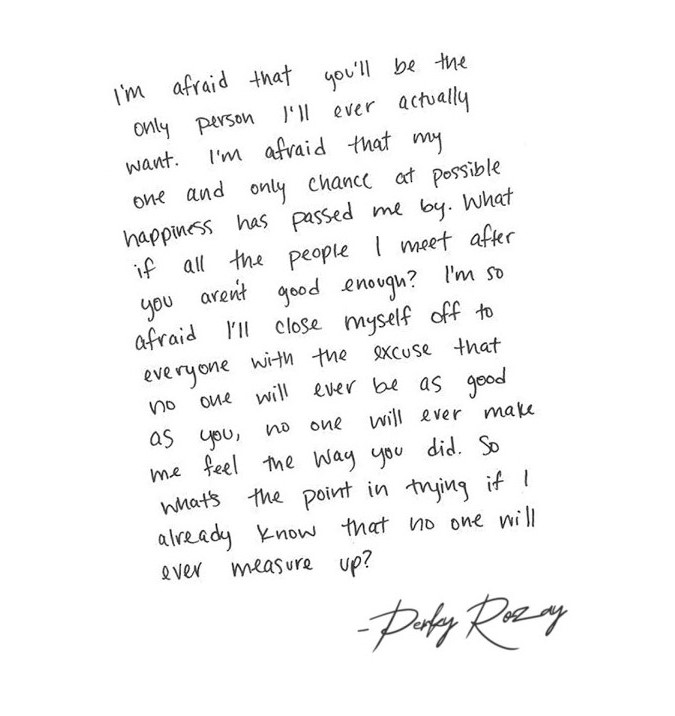 I'm afraid that you'll be the
only person I'll ever actually
want. I'm afraid that my
one and only chance at possible
happiness has passed me by. What
if all the people I meet after
you aren't good enough? I'm so
afraid I'll close myself off to
everyone with the excuse that
no one will ever be as good
as you, no one will ever make
me feel the way you did. So
what's the point in trying if I
already know that no one will
ever measure up?
- Perky Rozay